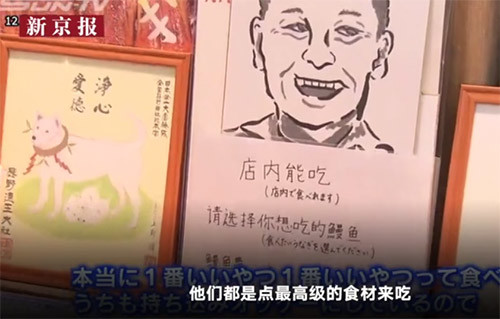 SUN-TV
12
新京报
浄心
愛徳
店内能吃
(店内で食べれます)
请选择你想吃的鳗鱼
(食べたいうなぎを選んでください)
本当に１番いいやつ１番いいやつって食べ
他们都是点最高级的食材来吃
うちも持ち込み
しているので